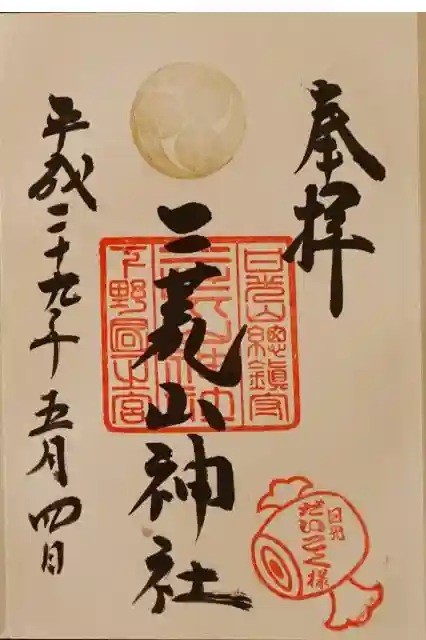 奉拝
二荒山神社
日光山總鎮守
二荒山神社
下野國一宮
平成二十九年五月四日
日光
だいこく様